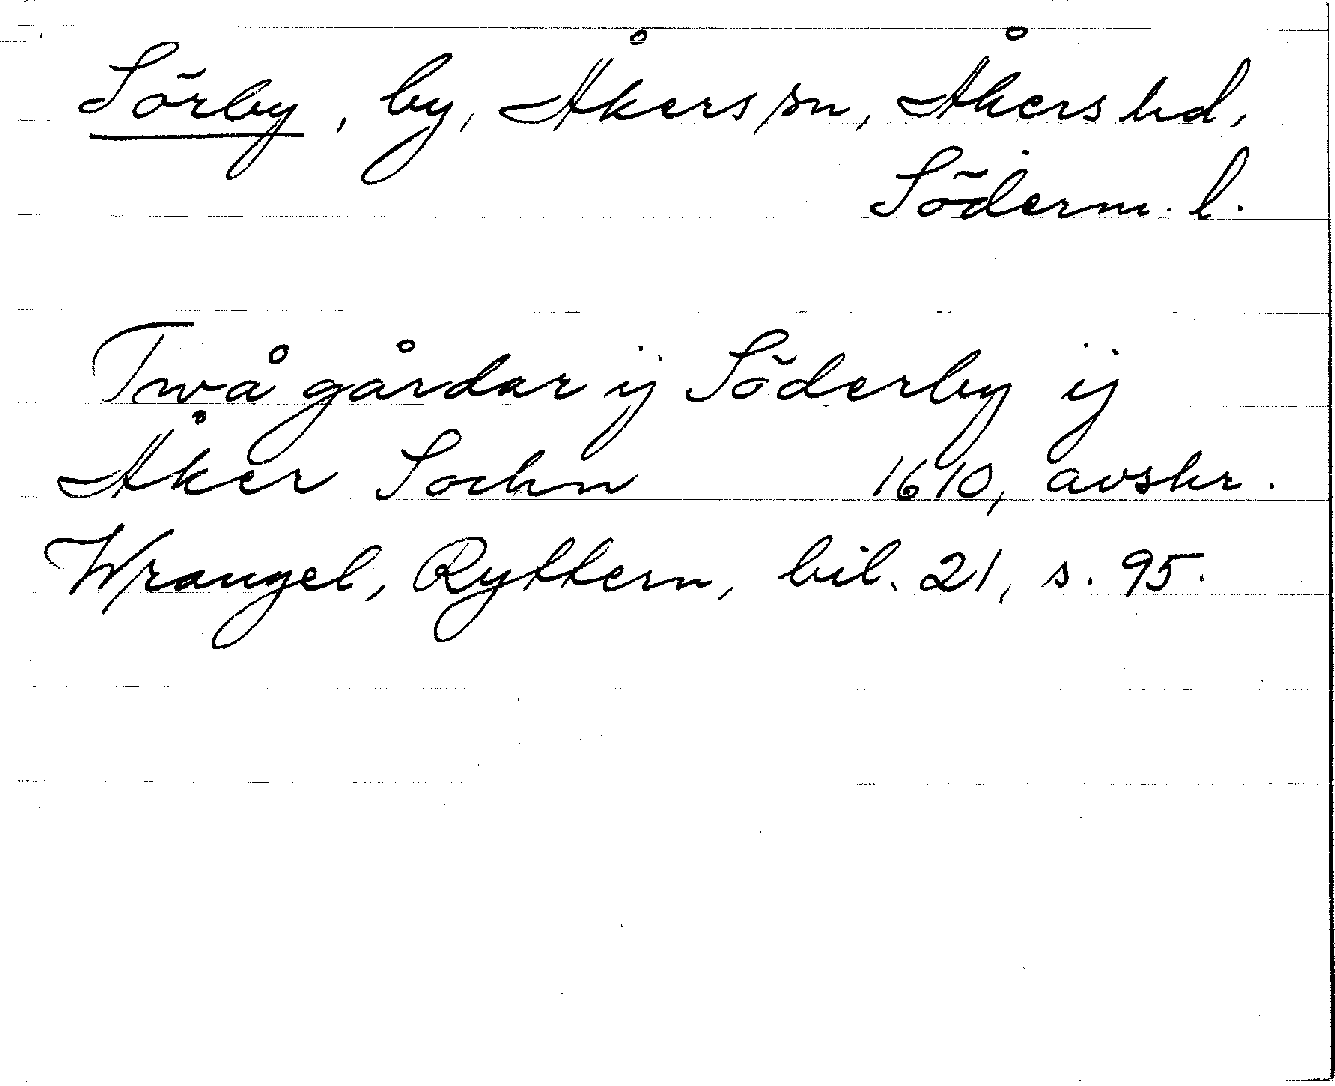 Sörby, by, Åkers sn, Åkers hd,
Söderm. l.
Twå gårdar ij Söderby ij
Åker Sochn 1610, avskr.
Wrangel, Ryttern, bil. 21, s. 95.